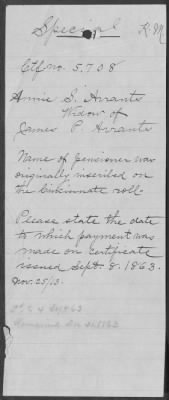 Special
K. M
Ctf. no. 5.708
Annie S. Arrants
Widow of
James P. Arrants
Name of pensioner was
originally inscribed on
the Cincinnate roll.
Please state the date
to which payment was
made on certificate
issued Sept. 8. 1863.
Nov. 25/13.